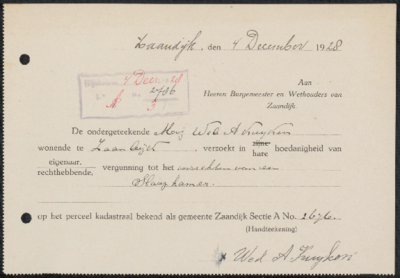 Zaandijk, den 4 December 1928
Ingekomen 4 Dec. 28
No. 2786
A 3
Aan
Heeren Burgemeester en Wethouders van
Zaandijk.
De ondergeteekende Mej Wed A Kuyken
wonende te Zaandijk, verzoekt in zijne hoedanigheid van
hare
eigenaar, vergunning tot het van een
rechthebbende,
Slaapkamer
op het perceel kadastraal bekend als gemeente Zaandijk Sectie A No. 2676
(Handteekening)
Wed A Kuyken